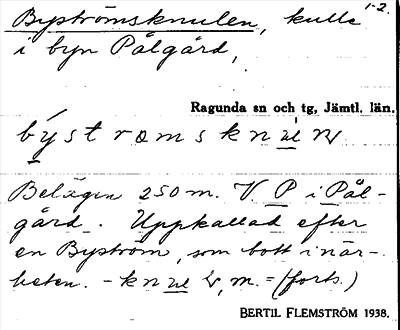 1-2.
Byströmsknulen, kulle
i byn Pålgård,
Ragunda sn och tg, Jämtl. län.
Belägen 250 m. V P i Pål-
gård. Uppkallad efter
en Byström, som bott i när-
heten. - (forts.)
BERTIL FLEMSTRÖM 1938.